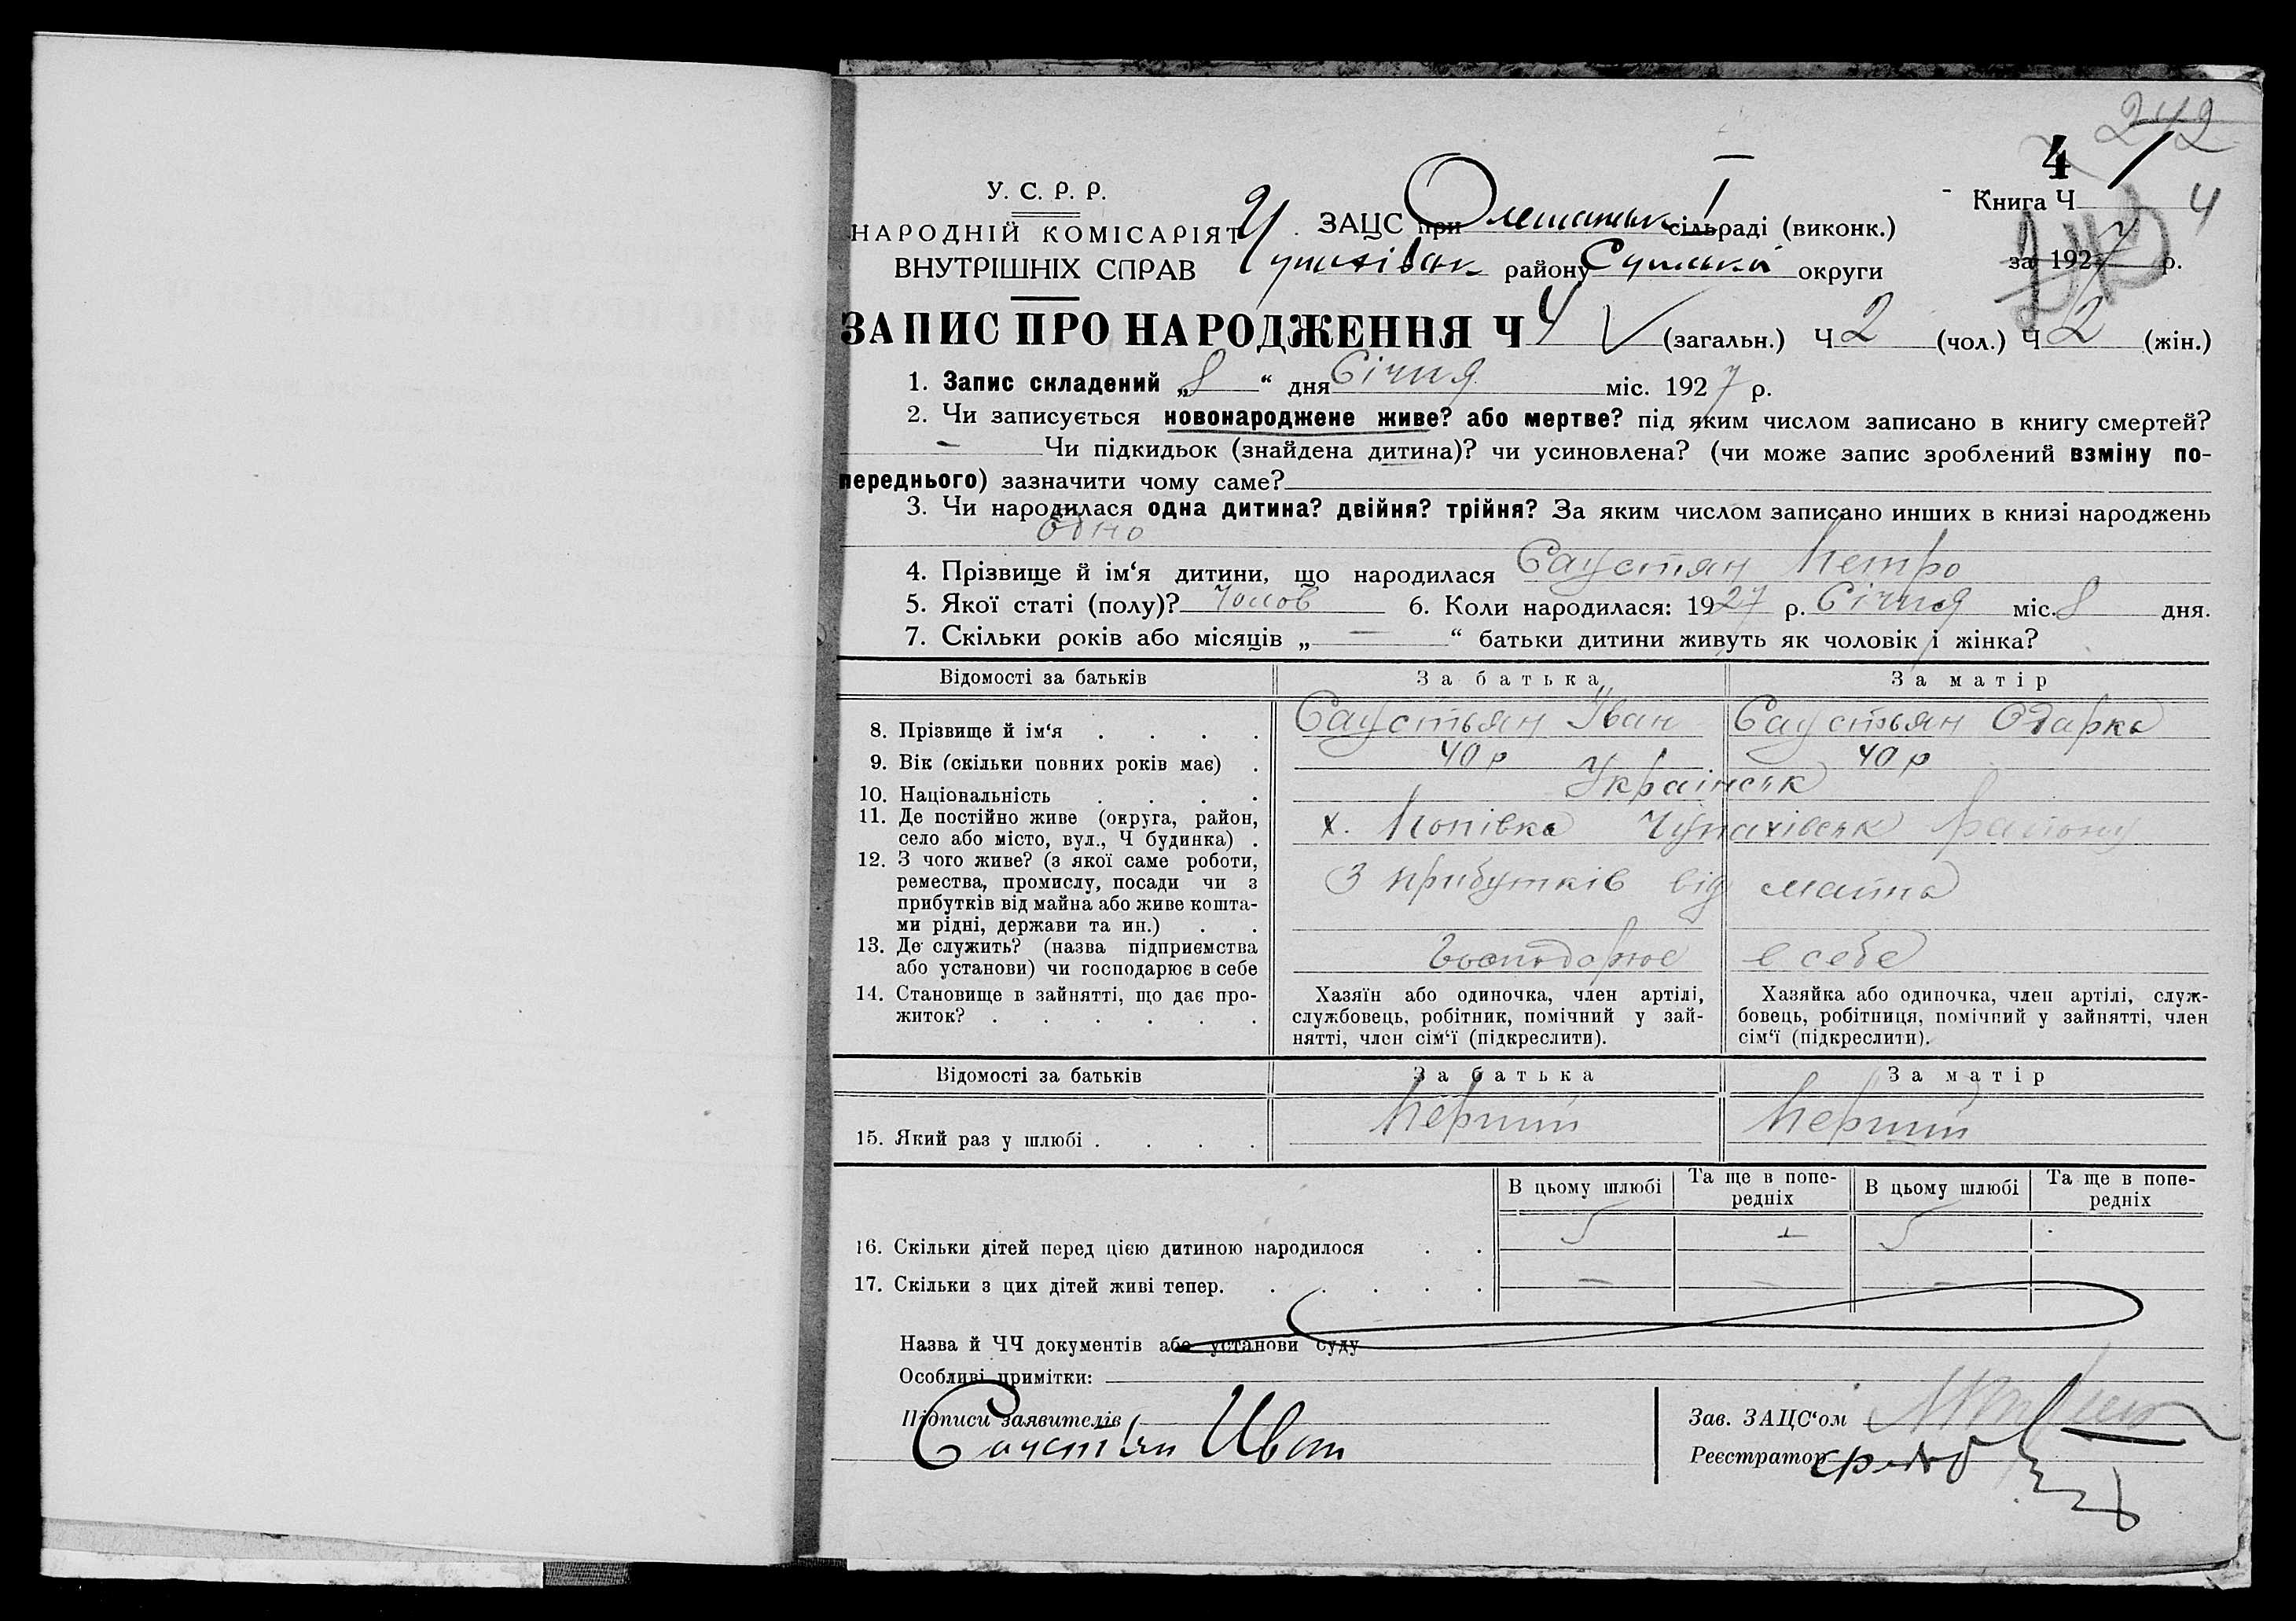 242
4
У. С. Р. Р.
НАРОДНІЙ КОМІСАРІЯТ
ВНУТРІШНІХ СПРАВ
ЗАЦС при Олешанськ I сільраді (виконк.)
Чупахівськ району Сумської округи
Книга Ч 4
за 1927 р.
ЗАПИС ПРО НАРОДЖЕННЯ Ч 4 (загальн.) Ч 2 (чол.) Ч 2 (жін.)
1. Запис складений „8“ дня Січня міс. 1927 р.
2. Чи записується новонароджене живе? або мертве? під яким числом записано в книгу смертей?
— Чи підкидьок (знайдена дитина)? чи усиновлена? (чи може запис зроблений взміну по-
переднього) зазначити чому саме?
3. Чи народилася одна дитина? двійня? трійня? За яким числом записано инших в книзі народжень
одно
4. Прізвище й ім‘я дитини, що народилася Саустян Петро
5. Якої статі (полу)? Чолов 6. Коли народилася: 1927 р. Січня міс. 8 дня.
7. Скільки років або місяців „—“ батьки дитини живуть як чоловік і жінка?
Відомості за батьків За батька За матір
8. Прізвище й ім‘я . . . . Саустьян Іван Саустьян Одарка
9. Вік (скільки повних років має) . 40 р 40 р
10. Національність . . . . Українськ
11. Де постійно живе (округа, район,
село або місто, вул., Ч будинка) . х. Попівка Чупахівськ району
12. З чого живе? (з якої саме роботи,
ремества, промислу, посади чи з
прибутків від майна або живе кошта-
ми рідні, держави та ин.) . . З прибутків від майна
13. Де служить? (назва підприємства
або установи) чи господарює в себе Господорює в себе
14. Становище в зайнятті, що дає про-
житок? . . . . . .
Хазяїн або одиночка, член артілі,
службовець, робітник, помічний у зай-
нятті, член сім‘ї (підкреслити).
Хазяйка або одиночка, член артілі, служ-
бовець, робітниця, помічний у зайнятті, член
сім‘ї (підкреслити).
Відомості за батьків За батька За матір
15. Який раз у шлюбі . . . . Перший Перший
В цьому шлюбі Та ще в попе-
редніх В цьому шлюбі Та ще в попе-
редніх
16. Скільки дітей перед цією дитиною народилося . . 5 — 5
17. Скільки з цих дітей живі тепер. . . . . . — — —
Назва й ЧЧ документів або установи суду
Особливі примітки:
Підписи заявителів
Саустьян Иван
Зав. ЗАЦС‘ом
Реєстратор